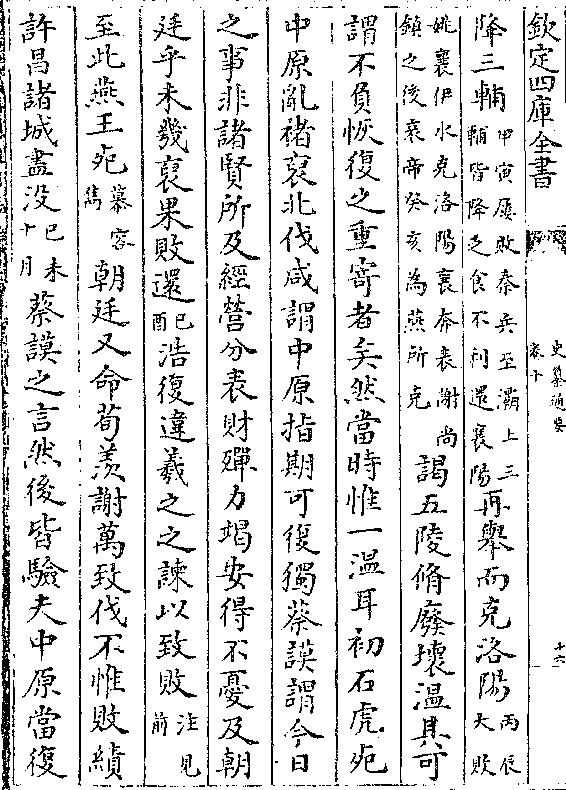 欽定四庫全書
史纂通要
卷十
十六
降三輔甲寅屢敗秦兵至灞上三輔皆降乏食不利還襄陽再舉而克洛陽丙辰大敗
姚襄伊水克洛陽襄奔表謝尚鎮之後哀帝癸亥為燕所克謁五陵脩廢壞温其可
謂不負恢復之重寄者矣然當時惟一温耳初石虎死
中原亂褚裒北伐咸謂中原指期可復獨蔡謨謂今日
之事非諸賢所及經營分表財殫力竭安得不憂及朝
廷乎未幾裒果敗還己酉浩復違羲之之諫以致敗注見前
至此燕王死慕容儁朝廷又命荀羨謝萬致伐不惟敗績
許昌諸城盡没己未十月蔡謨之言然後皆驗夫中原當復